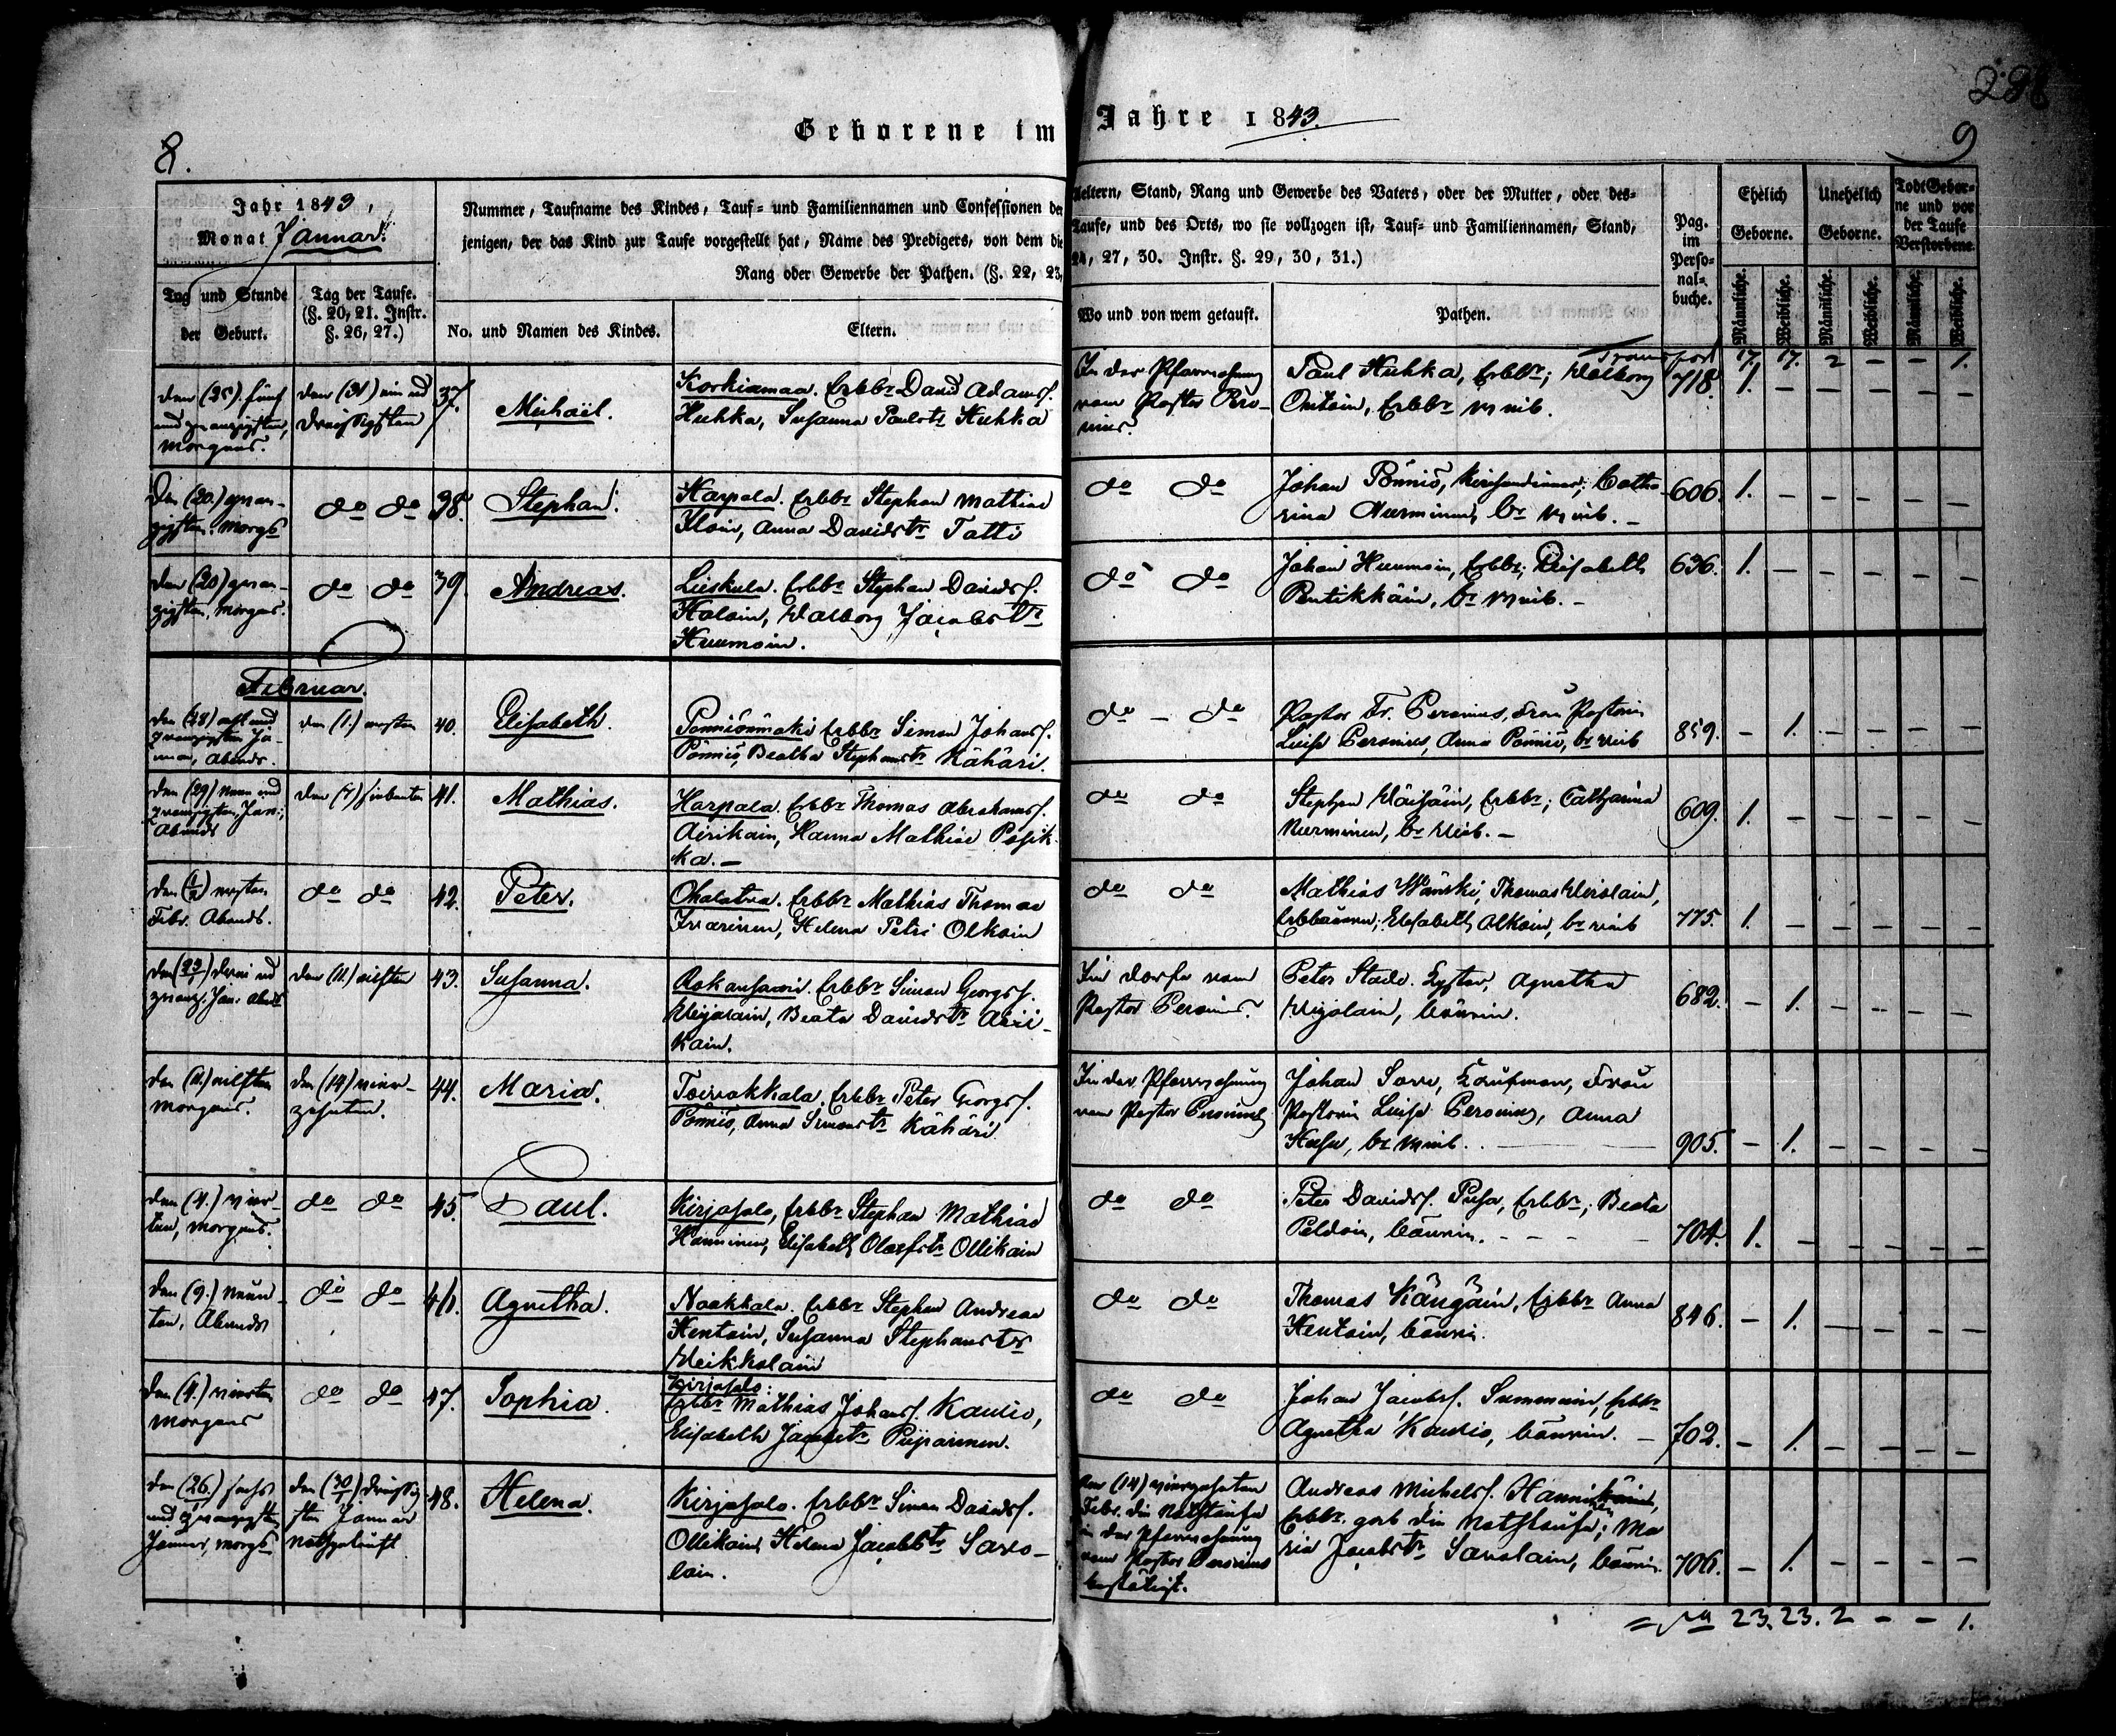 Geborene im Jahre 1843.
8.
9
Jahr 1843,
Monat Januar.
Tag und Stunde
der Geburt.
Tag der Taufe.
(§. 20, 21. Instr.
§. 26, 27.)
Nummer, Taufname des Kindes, Tauf- und Familiennamen und Confessionen der
jenigen, der das Kind zur Taufe vorgestellt hat, Name des Predigers, von dem die
Rang oder Gewerbe der Pathen. (§. 22, 23,
No. und Namen des Kindes.
Eltern.
Aeltern, Stand, Rang und Gewerbe des Vaters, oder der Mutter, oder des-
Taufe, und des Orts, wo sie vollzogen ist, Tauf- und Familiennamen, Stand,
24, 27, 30. Instr. §. 29, 30, 31.)
Wo und von wem getauft.
Pathen.
Pag.
im
Perso-
nal-
buche.
Ehelich
Geborne.
Unehelich
Geborne.
Todt Gebor-
ne und vor
der Taufe
Verstorbene.
Männliche.
Weibliche.
Männliche.
Weibliche.
Männliche.
Weibliche.
Transport 17. 17. 2 - - 1.
den (25) fünf
und zwanzigsten,
Morgens.
den (31) ein und
dreissigsten
37.
Michaël.
Korkiamaa. Erbbr David Adamsf.
Hukka, Susanna Paulstr Hukka
In der Pfarrwohnung
vom Pastor Pero-
nius.
Paul Hukka, Erbbr; Walborg
Ontoin, Erbbr Weib.
718. 1. - - - - -
Den (20.) zwan-
zigsten. Morgs
do do
38.
Stephan.
Harpala. Erbbr Stephan Mathias
Iloin, Anna Davidstr Tatti
do do
Johan Pönniö, Kirchendiener; Catha-
rina Nurminen, br Weib. -
606. 1. - - - - -
den (20) zwan-
zigsten, Morgens.
do do
39.
Andreas.
Lieskula. Erbbr Stephan Davidsf.
Haloin, Walborg Jacobstr
Huumoin.
do do
Johan Huumoin, Erbbr; Elisabeth
Pentikkäin, br Weib. -
636. 1. - - - - -
Februar.
den (28) acht und
zwanzigsten Ja-
nuar, Abends.
den (1.) ersten
40.
Elisabeth.
Pönniönmäki Erbbr Simon Johansf.
Pönniö, Beatha Stephanstr Kähäri.
do - do
Pastor Fr. Peronius, Frau Pastorin
Luise Peronius, Anna Pönniö, br Weib
859. - 1. - - - -
den (29) neun und
zwanzigsten, Jan.;
Abends
den (7) siebenten
41.
Mathias.
Harpala. Erbbr Thomas Abrahamsf.
Airikain, Hanna Mathiae Pösik-
ka. -
do do
Stephan Wäisäin, Erbbr; Catharina
Nurminen, br Weib. -
609. 1. - - - - -
den (1/2) ersten
Febr. Abends.
do do
42.
Peter.
Ohalatva. Erbbr Mathias Thomae
Ivarinen, Helena Petri Olkoin
do do
Mathias Wänski, Thomas Wirolain,
Erbbauern; Elisabeth Olkoin, br Weib
775. 1. - - - - -
den (23/1) drei und
zwanz. Jan. Abends
den (11.) eilften
43.
Susanna.
Rokansaari. Erbbr Simon Georgsf.
Weijolain, Beata Davidstr Airi-
kain.
Im Dorfe vom
Pastor Peronius.
Peter Stade. Küster, Agnetha
Weijolain, Bäurin.
682. - 1. - - - -
den (11.) eilften
Morgens.
den (14) vier-
zehnten.
44.
Maria.
Toivakkala. Erbbr Peter Georgsf.
Pönniö, Anna Simonstr Kähäri
In der Pfarrwohnung
vom Pastor Peronius
Johan Savo, Kaufman, Frau
Pastorin Luise Peronius, Anna
br Weib.
905. - 1. - - - -
den (4.) vier-
ten, Morgens.
do do
45.
Paul.
Kirjasalo, Erbbr Stephan Mathiae
Hänninen, Elisabeth Olaefstr Ollikain
do do
Peter Davidsf. Pusa, Erbbr; Beata
Peldoin, Bäurin. - - -
704. 1. - - - - -
den (9.) neun-
ten, Abends
do do
46.
Agnetha.
Naakkala. Erbbr Stephan Andreae
Hentoin, Susanna Stephanstr
Weikkolain
do do
Thomas Kängäin, Erbbr Anna
Hentoin, Bäurin.
846. - 1. - - - -
den (4.) vierten
Morgens
do do
47.
Sophia.
Kirjasalo:
Erbbr Mathias Johansf. Kautio,
Elisabeth Jacobstr Piiparinen.
do do
Johan Jacobsf. Summain, Erbbr
Agnetha Kautio, Bäurin. -
702. - 1. - - - -
den (26.) sechs
und zwanzigsten
Januar, Morgs
den (30/1) dreissig-
sten Januar
nothgetauft
48.
Helena.
Kirjasalo. Erbbr Simon Davidsf.
Ollikain, Helena Jacobstr Savo-
lain.
den (14) vierzehnten
Febr. die Nothtaufe
in der Pfarrwohnung
vom Pastor Peronius
bestätigt.
Andreas Michelsf. Hännikäin,
Erbbr. gab die Nothtaufe; Ma-
ria Jacobstr Savolain, Bäurin.
706. - 1. - - - -
23. 23. 2 - - 1.